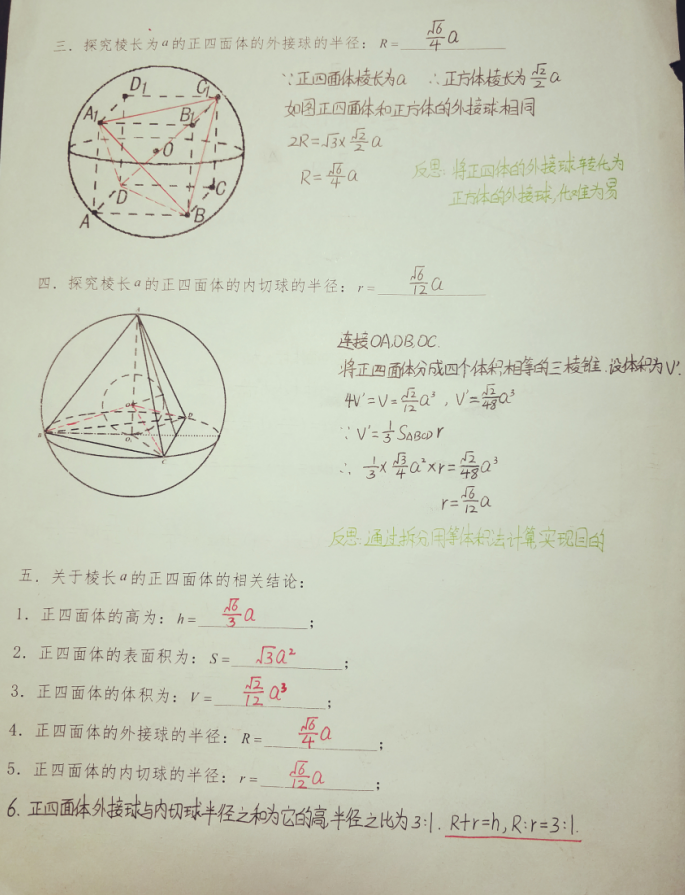 三. 探究棱长为a的正四面体的外接球的半径: R = √6/4 a
∵正四面体棱长为a ∴正方体棱长为√2/2 a
如图正四面体和正方体的外接球相同
2R=√3×√2/2 a
R=√6/4 a
反思: 将正四体的外接球转化为
正方体的外接球,化难为易
D1 C1
A1 B1
O
D C
A B
四. 探究棱长a的正四面体的内切球的半径: r = √6/12 a
连接OA,OB,OC.
将正四面体分成四个体积相等的三棱锥.设体积为V'.
4V'=V=√2/12 a³, V'=√2/48 a³
∵ V'=1/3 S△BCD r
∴ 1/3×√3/4 a²×r=√2/48 a³
r=√6/12 a
反思:通过拆分用等体积法计算实现目的
五. 关于棱长a的正四面体的相关结论:
1. 正四面体的高为: h = √6/3 a ;
2. 正四面体的表面积为: S = √3a² ;
3. 正四面体的体积为: V = √2/12 a³ ;
4. 正四面体的外接球的半径: R = √6/4 a ;
5. 正四面体的内切球的半径: r = √6/12 a ;
6. 正四面体外接球与内切球半径之和为它的高,半径之比为3:1. R+r=h, R:r=3:1.